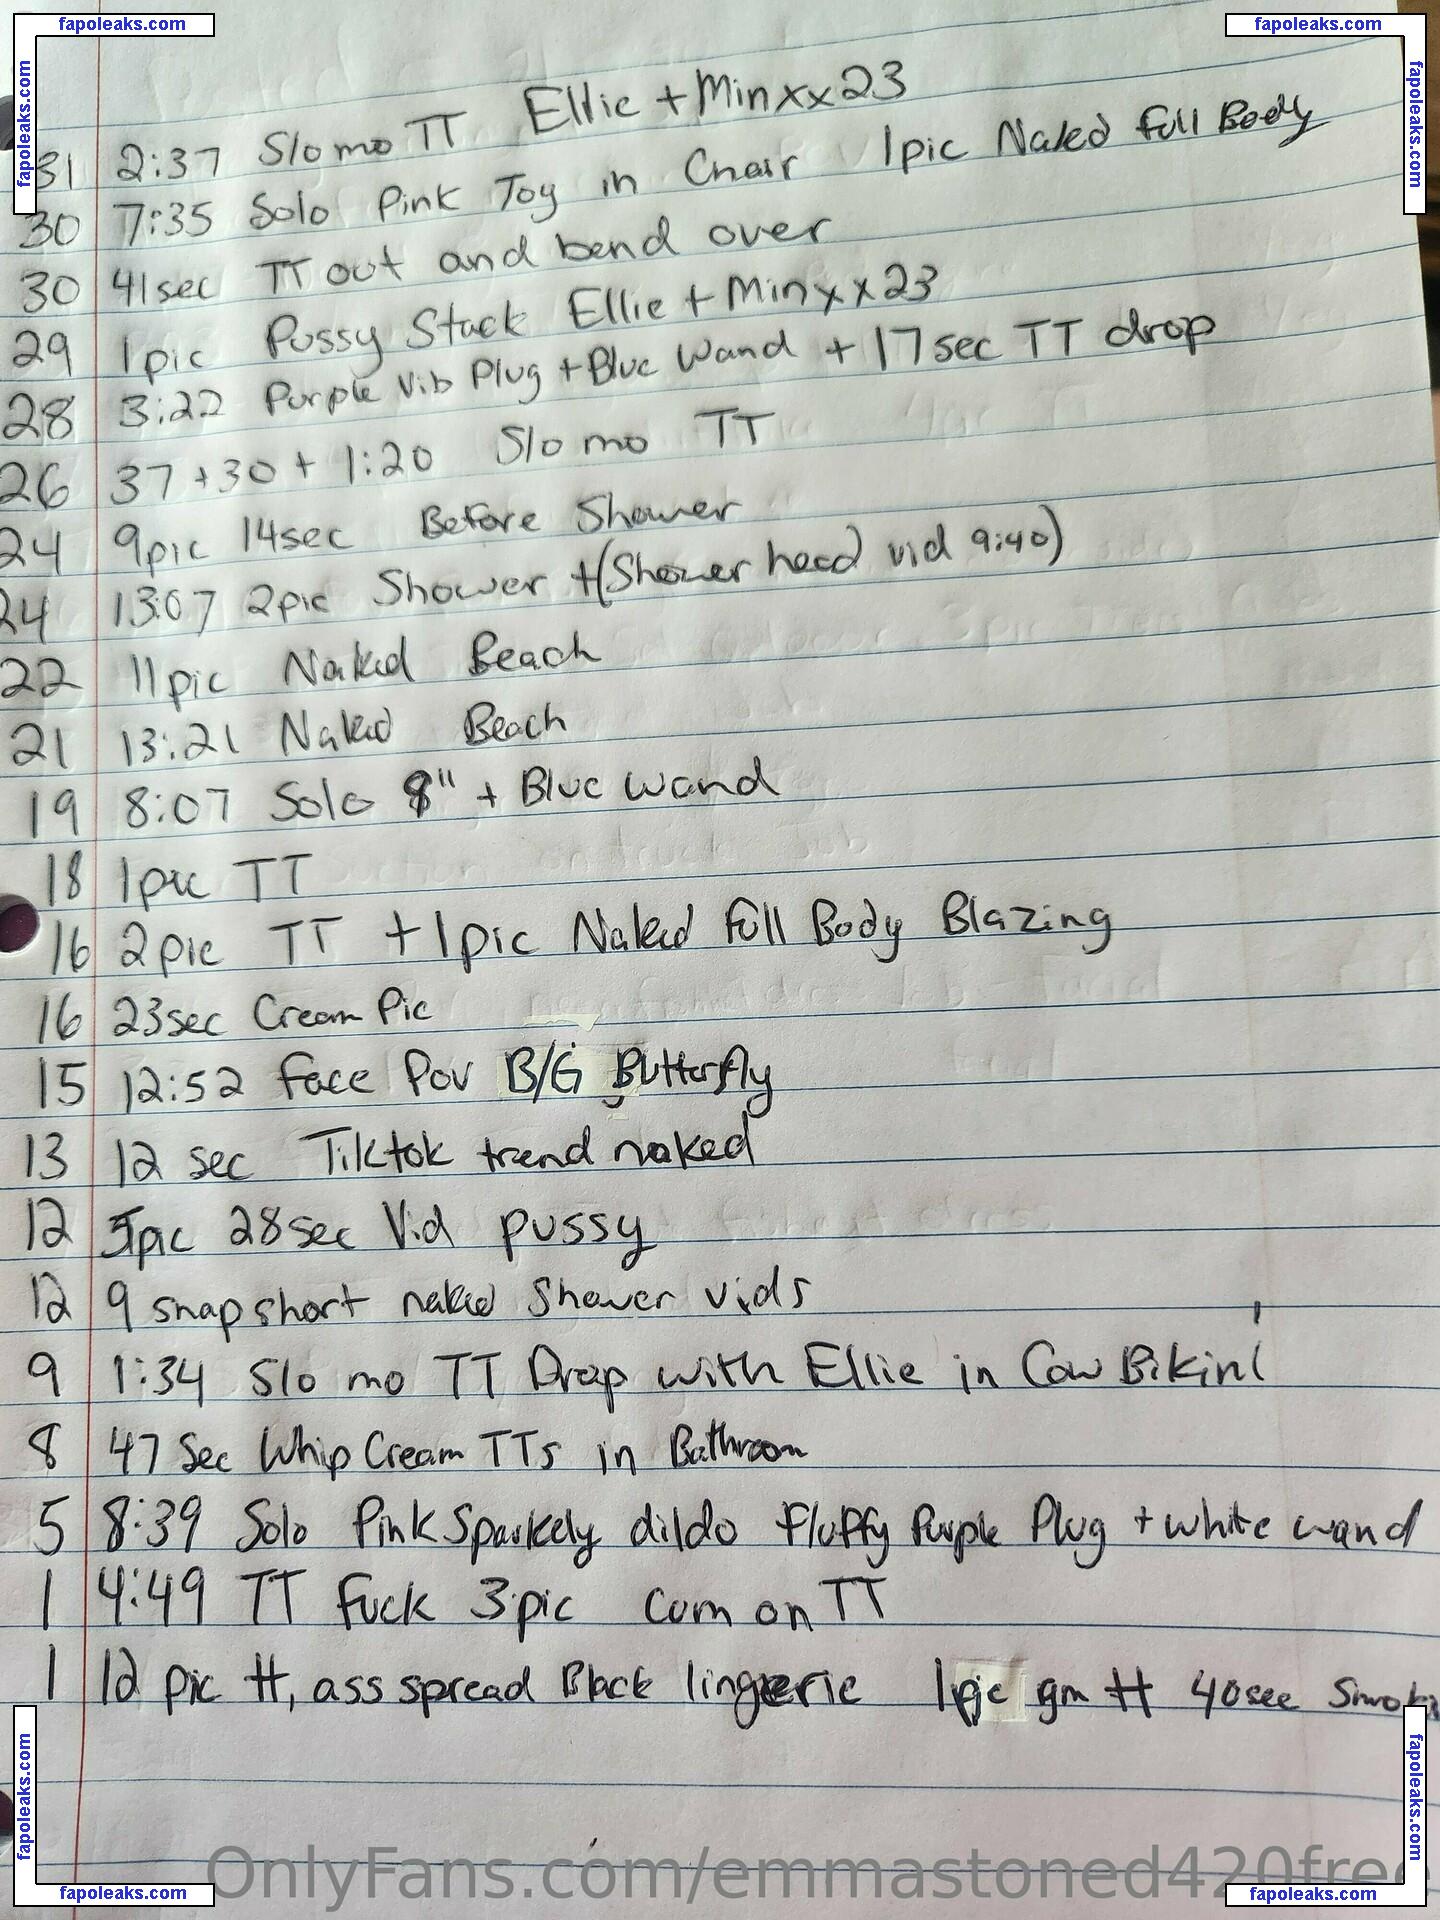 fapoleaks.com
fapoleaks.com
fapoleaks.com
fapoleaks.com
31 2:37 Slo mo TT Ellie + Minxx23
30 7:35 Solo Pink Toy in Chair 1pic Naked full Body
30 41sec TT out and bend over
29 1pic Pussy Stack Ellie + Minxx23
28 3:22 Purple Vib Plug + Blue Wand + 17sec TT drop
26 37 + 30 + 1:20 Slo mo TT
24 9pic 14sec Before Shower
24 13:07 2pic Shower + (Shower head vid 9:40)
22 11pic Naked Beach
21 13:21 Naked Beach
19 8:07 Solo 8" + Blue Wand
18 1pic TT
16 2pic TT + 1pic Naked Full Body Blazing
16 23sec Cream Pic
15 12:52 Face Pov B/G Butterfly
13 12 sec Tiktok trend naked
12 5pic 28sec Vid pussy
12 9 snap short naked Shower vids
9 1:34 Slo mo TT Drop with Ellie in Cow Bikini
8 47 Sec Whip Cream TTs in Bathroom
5 8:39 Solo Pink Sparkely dildo Fluffy Purple Plug + white wand
1 4:49 TT Fuck 3pic Cum on TT
1 12 pic tt, ass spread Black lingerie 1pic gm tt 40sec
OnlyFans.com/emmastoned420free
fapoleaks.com
fapoleaks.com
fapoleaks.com
fapoleaks.com